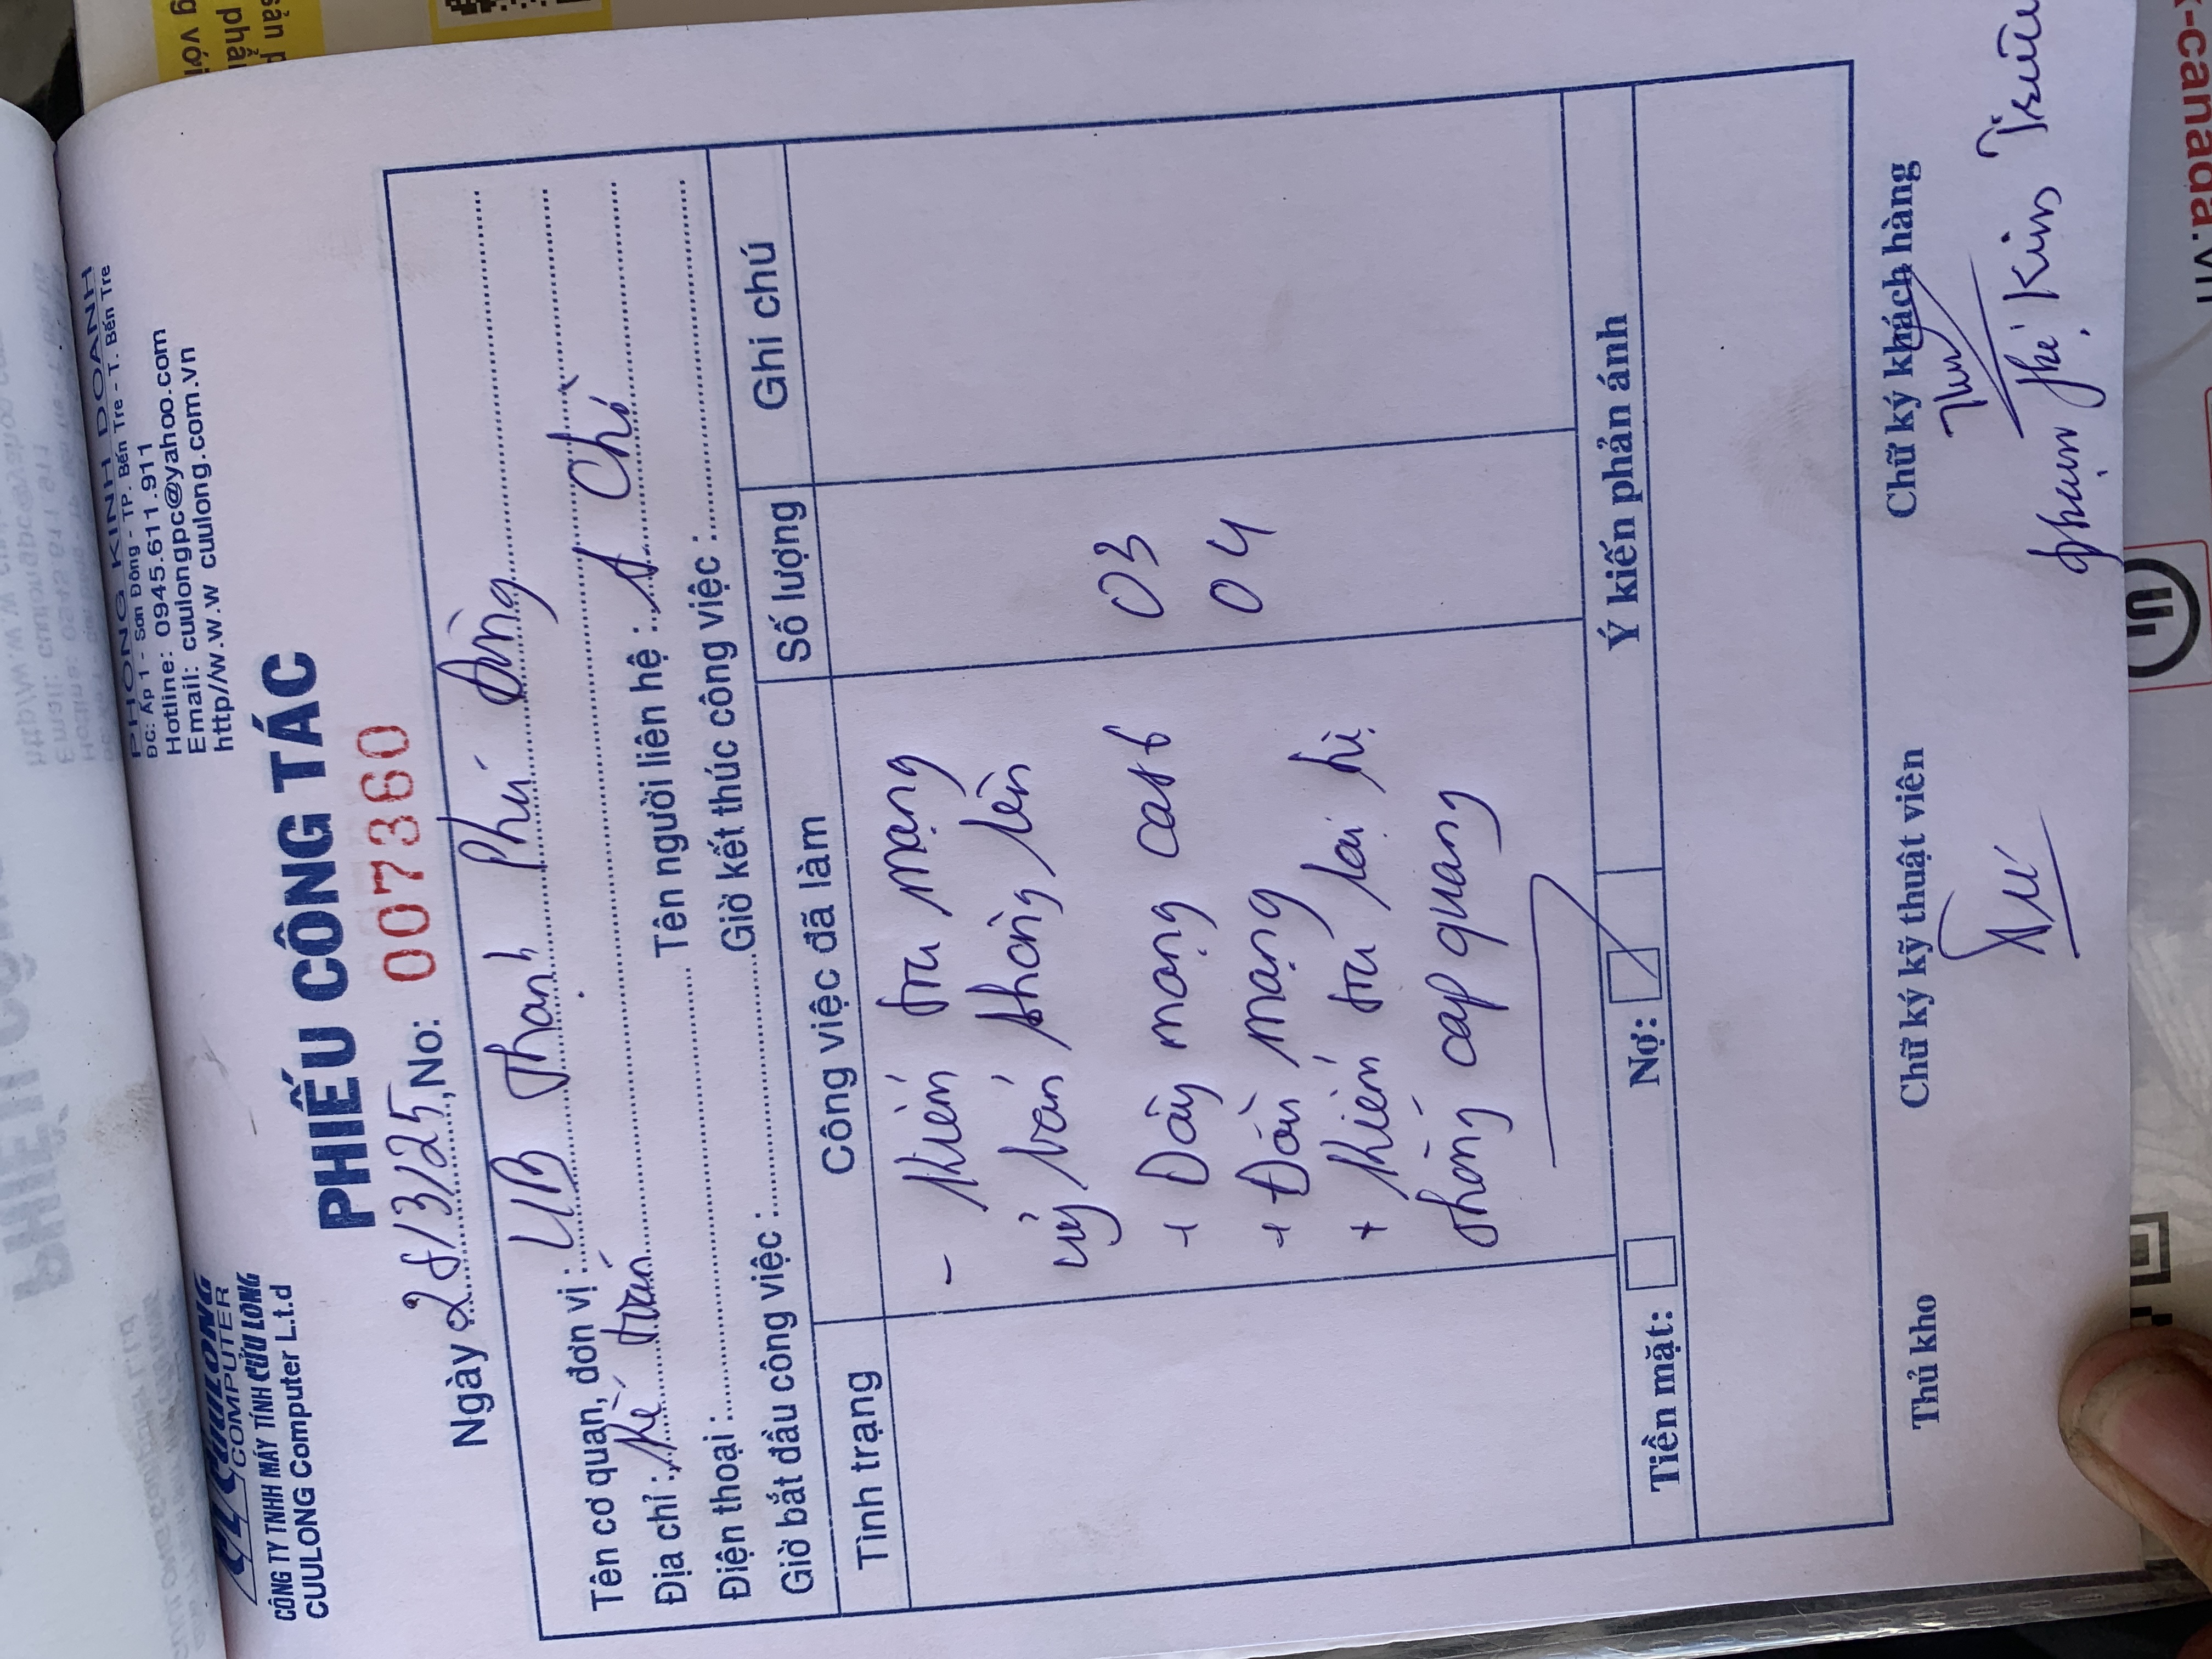 CUULONG
COMPUTER
CÔNG TY TNHH MÁY TÍNH CỬU LONG
CUULONG Computer L.t.d
PHÒNG KINH DOANH
ĐC: Ấp 1 - Sơn Đông - TP. Bến Tre - T. Bến Tre
Hotline: 0945.611.911
Email: cuulongpc@yahoo.com
http//w.w.w cuulong.com.vn
PHIẾU CÔNG TÁC
Ngày 28/3/25, No: 007360
Tên cơ quan, đơn vị: UB Thạnh Phú Đông
Địa chỉ: Kế toán
Điện thoại: Tên người liên hệ: A Chí
Giờ bắt đầu công việc: Giờ kết thúc công việc:
Tình trạng Công việc đã làm Số lượng Ghi chú
- Kiểm tra mạng
uỷ ban không lên
+ Dây mạng cat6 03
+ Đầu mạng 04
+ Kiểm tra lại bị
hỏng cap quang
Tiền mặt: Nợ: Ý kiến phản ánh
Thủ kho Chữ ký kỹ thuật viên Chữ ký khách hàng
Phạm Thị Kim
sản p
phẩ
g với
x-canada.vn